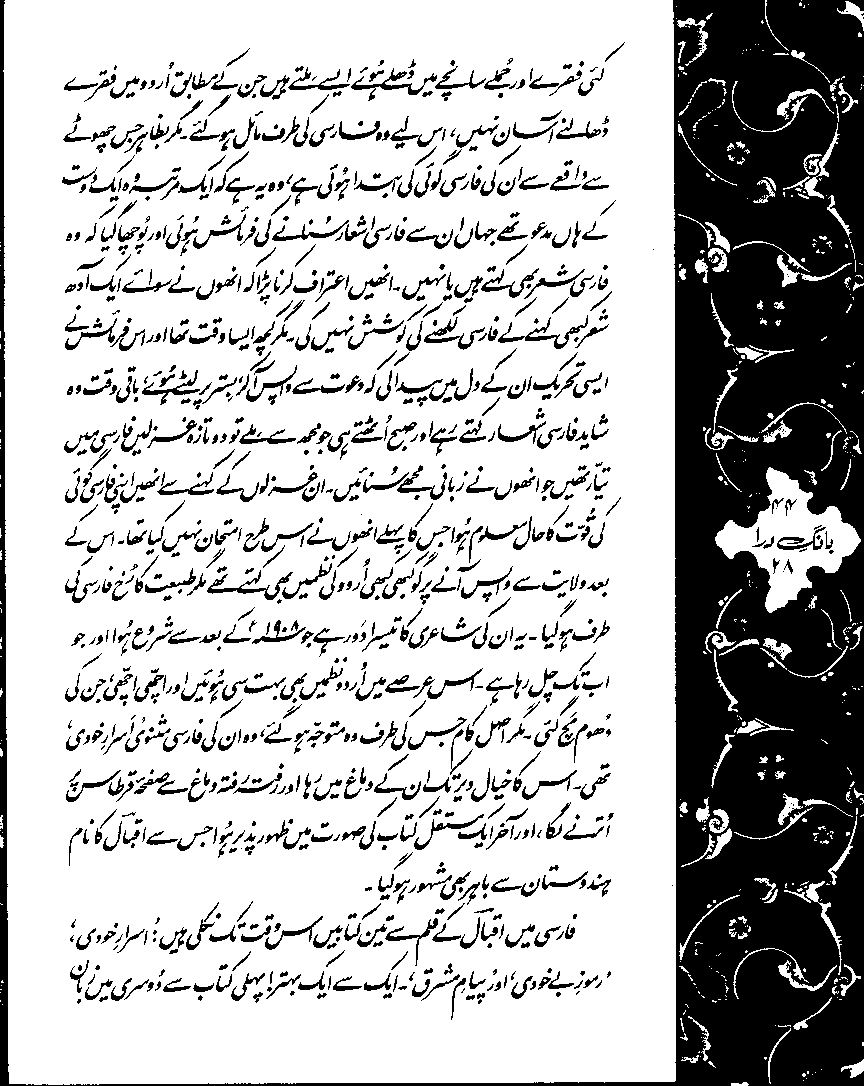 کئی فقرے اور جُملے سانچے میں ڈھلے ہُوئے ایسے ملتے ہیں جن کے مطابق اُردو میں فقرے
ڈھالنے آسان نہیں، اس لیے وہ فارسی کی طرف مائل ہو گئے۔ مگر بظاہر جس چھوٹے
سے واقعے سے ان کی فارسی گوئی کی ابتدا ہُوئی ہے، وہ یہ ہے کہ ایک مرتبہ وہ ایک دوست
کے ہاں مدعو تھے جہاں ان سے فارسی اشعار سُنانے کی فرمائش ہُوئی اور پُوچھا گیا کہ وہ
فارسی شعر بھی کہتے ہیں یا نہیں۔ انھیں اعتراف کرنا پڑا کہ انھوں نے سوائے ایک آدھ
شعر کبھی کہنے کے فارسی لکھنے کی کوشش نہیں کی۔ مگر کچھ ایسا وقت تھا اور اس فرمائش نے
ایسی تحریک ان کے دل میں پیدا کی کہ دعوت سے واپس آ کر، بستر پر لیٹے ہُوئے، باقی وقت وہ
شاید فارسی اشعار کہتے رہے اور صبح اُٹھتے ہی جو مجھ سے ملے تو دو تازہ غزلیں فارسی میں
تیّار تھیں جو انھوں نے زبانی مجھے سُنائیں۔ ان غزلوں کے کہنے سے انھیں اپنی فارسی گوئی
کی قُوّت کا حال معلوم ہُوا جس کا پہلے انھوں نے اس طرح امتحان نہیں کیا تھا۔ اس کے
بعد ولایت سے واپس آنے پر گو کبھی کبھی اُردو کی نظمیں بھی کہتے تھے مگر طبیعت کا رُخ فارسی کی
طرف ہو گیا۔ یہ ان کی شاعری کا تیسرا دَور ہے جو ۱۹۰۸ء کے بعد سے شروع ہُوا اور جو
اب تک چل رہا ہے۔ اس عرصے میں اُردو نظمیں بھی بہت سی ہُوئیں اور اچھّی اچھّی، جن کی
دُھوم مچ گئی۔ مگر اصل کام جس کی طرف وہ متوجّہ ہو گئے، وہ ان کی فارسی مثنوی ’اسرارِ خودی‘
تھی۔ اس کا خیال دیر تک ان کے دماغ میں رہا اور رفتہ رفتہ دماغ سے صفحۂ قرطاس پر
اُترنے لگا، اور آخر ایک مستقل کتاب کی صورت میں ظہور پذیر ہُوا جس سے اقبالؔ کا نام
ہندوستان سے باہر بھی مشہور ہو گیا۔
فارسی میں اقبالؔ کے قلم سے تین کتابیں اس وقت تک نکلی ہیں: ’اسرارِ خودی‘،
’رموزِ بے خودی‘ اور ’پیامِ مشرق‘۔ ایک سے ایک بہتر! پہلی کتاب سے دُوسری میں زبان
۴۴
بانگِ درا
۲۸